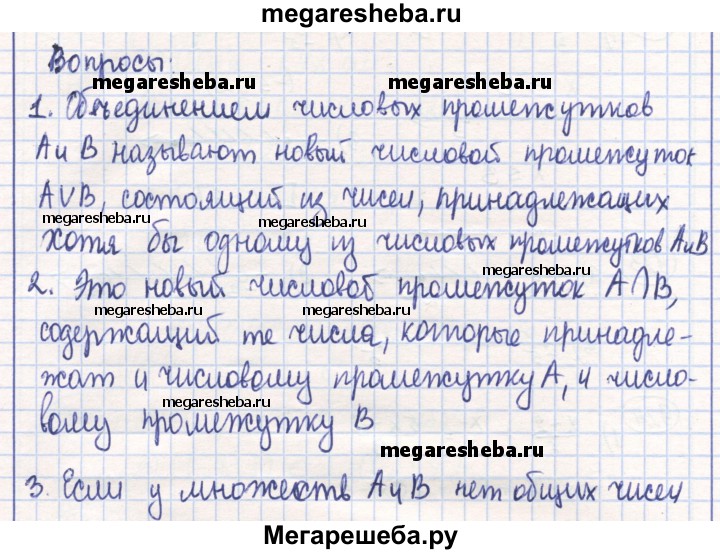 megaresheba.ru
Вопросы:
megaresheba.ru megaresheba.ru
1. Объединением числовых промежутков
A и B называют новый числовой промежуток
A∪B, состоящий из чисел, принадлежащих
megaresheba.ru megaresheba.ru
хотя бы одному из числовых промежутков A и B
megaresheba.ru
2. Это новый числовой промежуток A∩B,
megaresheba.ru
содержащий те числа, которые принадле-
жат и числовому промежутку A, и число-
вому промежутку B
megaresheba.ru
3. Если у множеств A и B нет общих чисел
Мегарешеба.ру